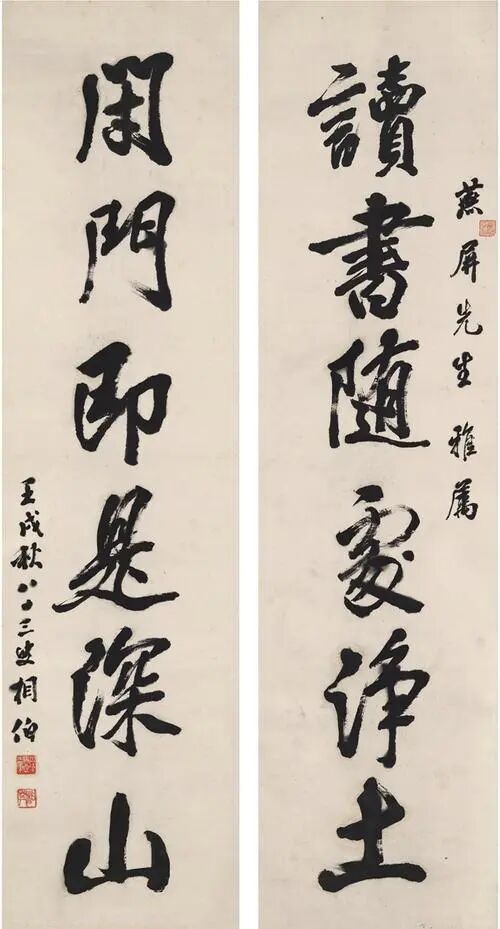 燕屏先生雅屬
讀書随處淨土
閉門即是深山
壬戌秋八十三叟相伯